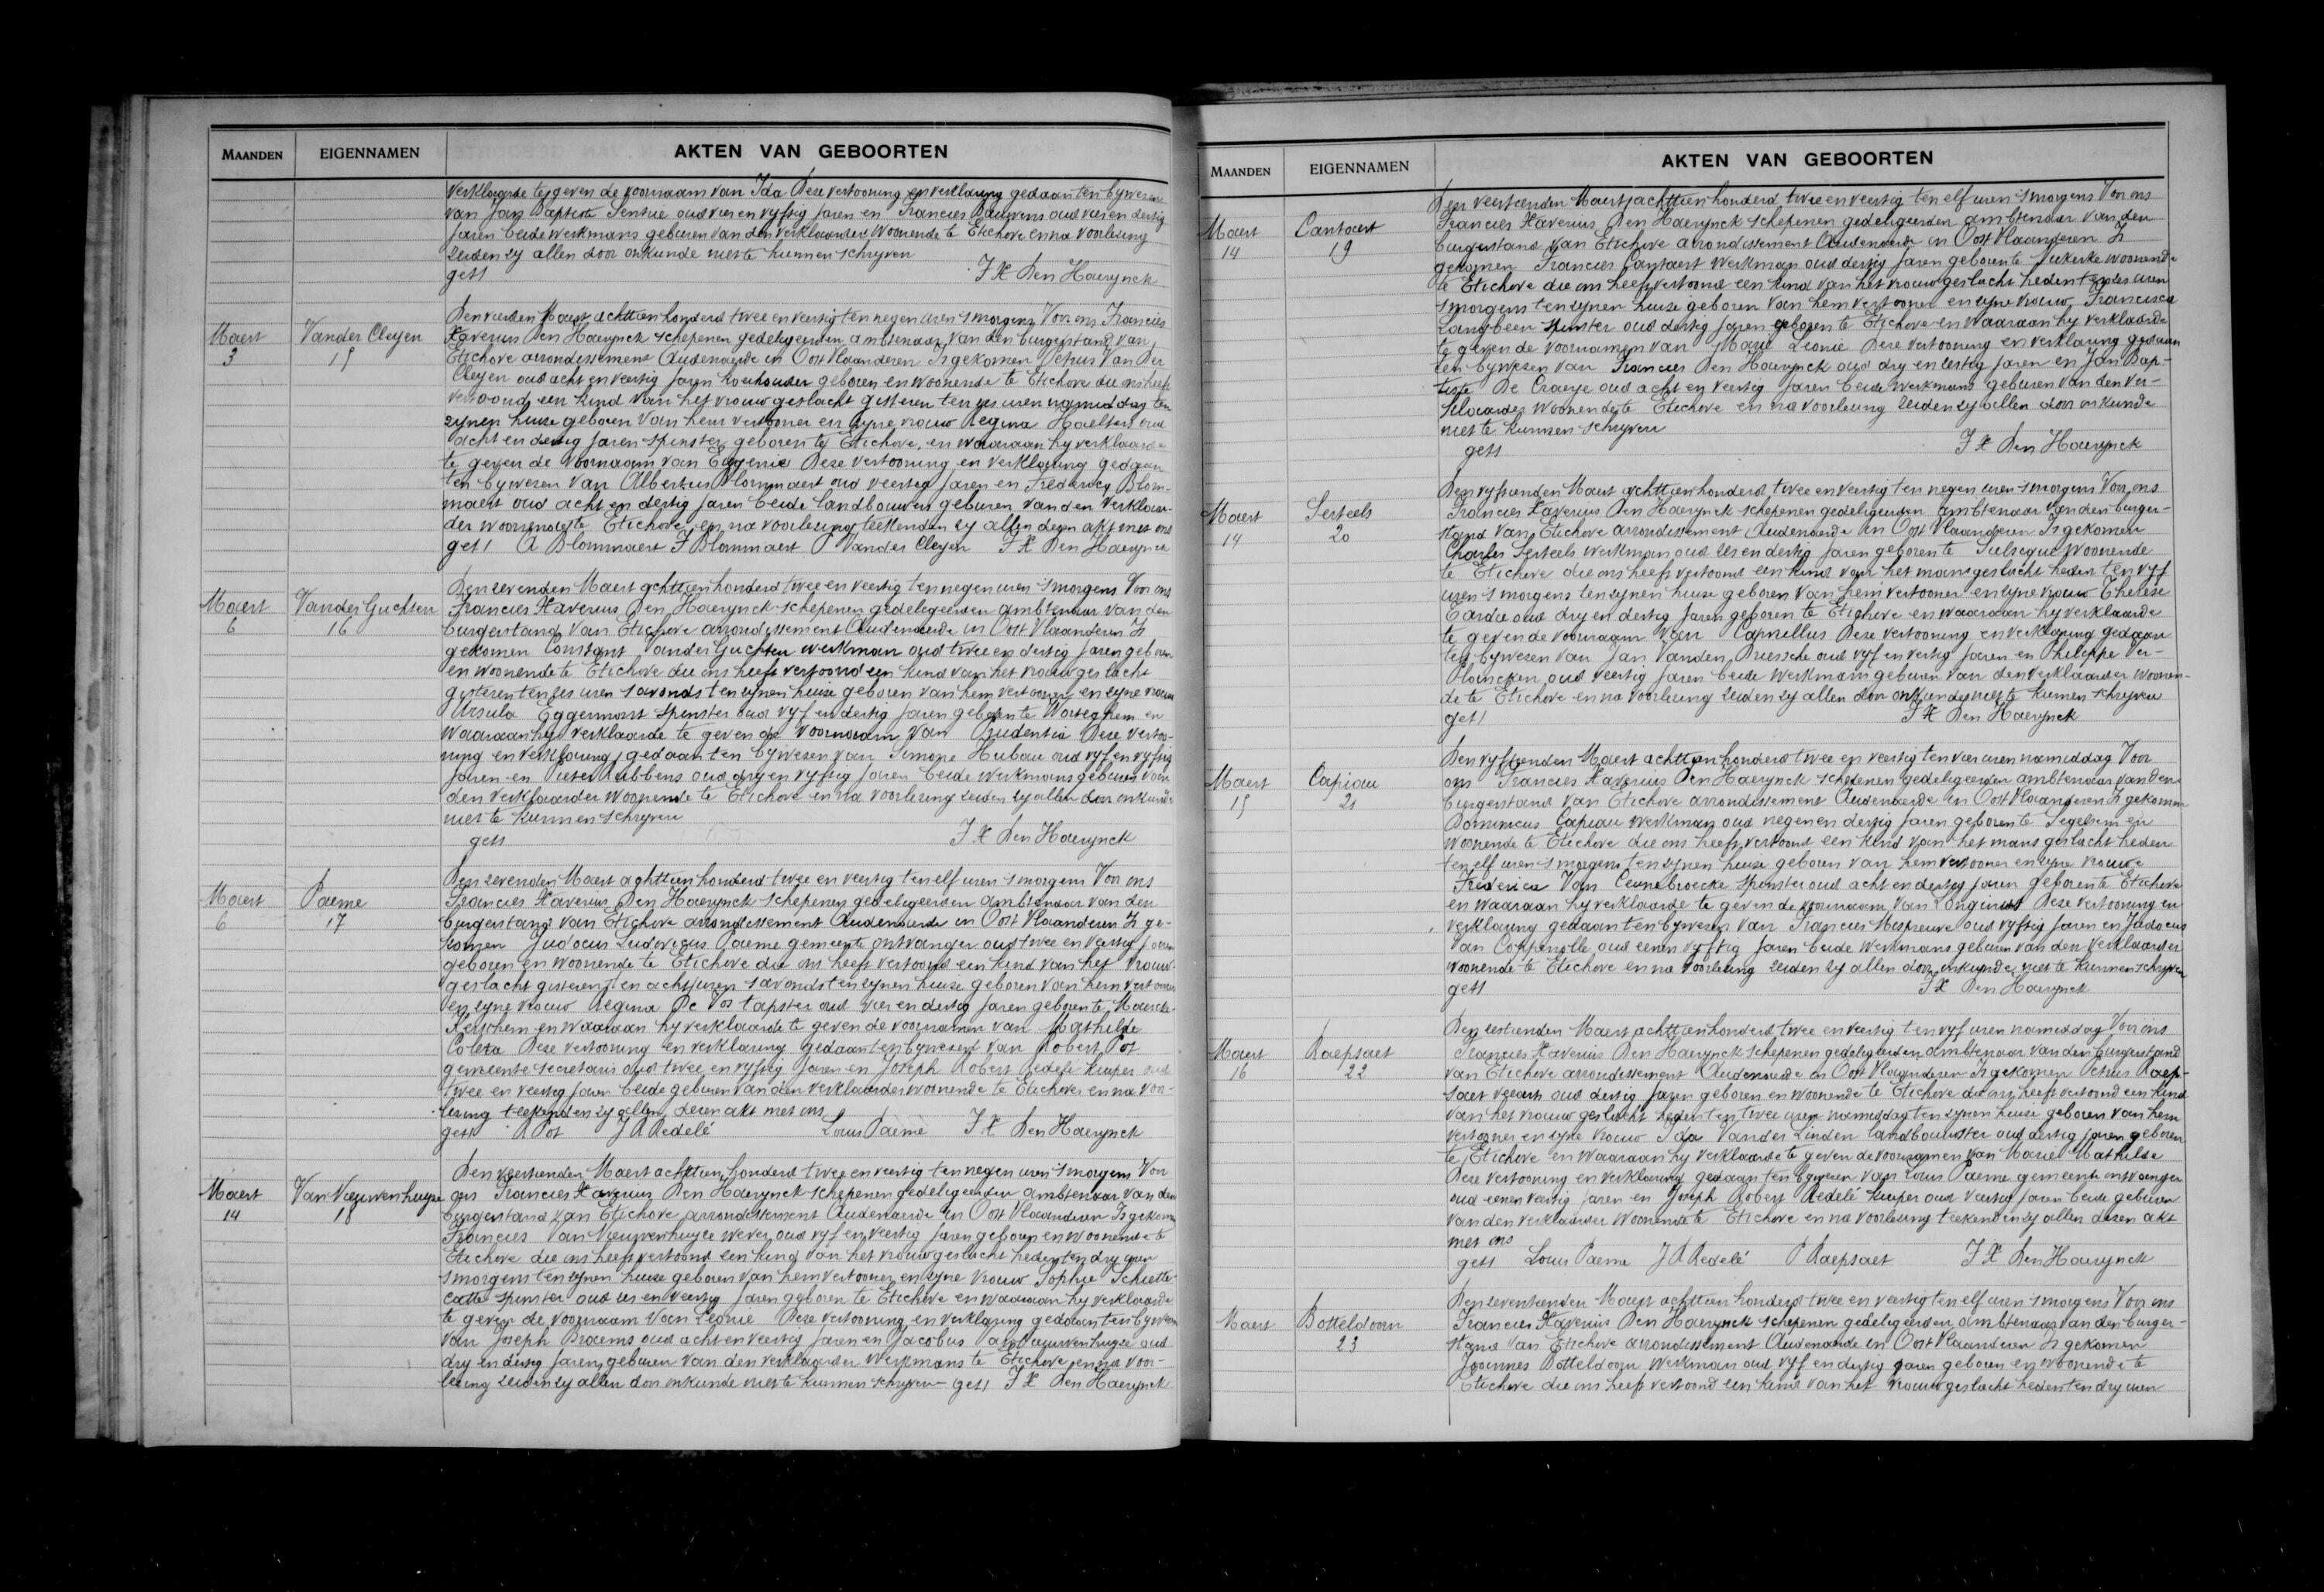 MAANDEN EIGENNAMEN AKTEN VAN GEBOORTEN
verklaarde te geven de voornaam van Ida Deze vertooning en verklaring gedaan ten bywesen
van Jan Baptiste oud vier en vyftig jaren en Francies Bauwens oud vier en dertig
jaren beide werkmans geburen van den verklaarder woonende te Etichove en na voorlezing
zeiden zy allen door onkunde niet te kunnen schryven
get1 F X Den Haerynck
Maert 3 Vander Cleyen 15
Den vierden Maert achttien honderd twee en veertig ten negen uren s morgens Voor ons Francies
Xaverius Den Haerynck schepenen gedeligeerden ambtenaar van den burgerstand van
Etichove arrondissement Audenaerde in Oost Vlaanderen Is gekomen Petrus Van Der
Cleyen oud acht en veertig jaren koehouder geboren en woonende te Etichove die ons heeft
vertoond een kind van het vrouw geslacht gisteren ten zes uren namiddag ten
zynen huize geboren van hem vertooner en zyne vrouw Regina Haelters oud
acht en dertig jaren spinster geboren te Etichove en waaraan hy verklaarde
te geven de voornaam van Eugenie Deze vertooning en verklaring gedaan
ten bywesen van Albertus Blommaert oud veertig jaren en Frederic Blom-
maert oud acht en dertig jaren beide landbouwers geburen van den verklaar-
der woonende te Etichove en na voorlezing teekenden zy allen dezen akt met ons
get1 A Blommaert F Blommaert P Vander Cleyen F X Den Haerynck
Maert 6 Vander Guchten 16
Den zevenden Maert achttien honderd twee en veertig ten negen uren s morgens Voor ons
Francies Xaverius Den Haerynck schepenen gedeligeerden ambtenaar van den
burgerstand van Etichove arrondissement Audenaerde in Oost Vlaanderen Is
gekomen Constant Vander Guchten werkman oud twee en dertig jaren geboren
en woonende te Etichove die ons heeft vertoond een kind van het vrouw geslacht
gisteren ten zes uren s avonds ten zynen huize geboren van hem vertooner en zyne vrouw
Ursula Eggermont spinster oud vyf en dertig jaren geboren te Worteghem en
waaraan hy verklaarde te geven de voornaam van Prudentia Deze vertoo-
ning en verklaring gedaan ten bywesen van Simone Hubau oud vyf en vyftig
jaren en Pieter Rubbens oud dry en vyftig jaren beide werkmans geburen van
den verklaarder woonende te Etichove en na voorlezing zeiden zy allen door onkunde
niet te kunnen schryven
get1 F X Den Haerynck
Maert 6 Paeme 17
Den zevenden Maert achttien honderd twee en veertig ten elf uren s morgens Voor ons
Francies Xaverius Den Haerynck schepenen gedeligeerden ambtenaar van den
burgerstand van Etichove arrondissement Audenaerde in Oost Vlaanderen Is ge-
komen Judocus Ludovicus Paeme gemeente ontvanger oud twee en veertig jaren
geboren en woonende te Etichove die ons heeft vertoond een kind van het vrouw
geslacht gisteren ten acht uren s avonds ten zynen huize geboren van hem vertooner
en zyne vrouw Regina De Vos tapster oud vier en dertig jaren geboren te Maercke
Kerkhem en waaraan hy verklaarde te geven de voornamen van Mathilde
Coleta Deze vertooning en verklaring gedaan ten bywesen van Robert Pot
gemeente secretaris oud twee en vyftig jaren en Joseph Robert Redelé kuiper oud
twee en veertig jaren beide geburen van den verklaarder woonende te Etichove en na voor-
lezing teekenden zy allen dezen akt met ons
get1 R Pot J R Redelé Louis Paeme F X Den Haerynck
Maert 14 Van Nieuwenhuyse 18
Den veertienden Maert achttien honderd twee en veertig ten negen uren s morgens Voor
ons Francies Xaverius Den Haerynck schepenen gedeligeerden ambtenaar van den
burgerstand van Etichove arrondissement Audenaerde in Oost Vlaanderen Is gekomen
Francies Van Nieuwenhuyse wever oud vyf en veertig jaren geboren en woonende te
Etichove die ons heeft vertoond een kind van het vrouw geslacht heden ten dry uren
s morgens ten zynen huize geboren van hem vertooner en zyne vrouw Sophie Schiette-
catte spinster oud zes en veertig jaren geboren te Etichove en waaraan hy verklaarde
te geven de voornaam van Leonie Deze vertooning en verklaring gedaan ten bywesen
van Joseph Braems oud acht en veertig jaren en Jacobus Van Nieuwenhuyse oud
dry en dertig jaren geburen van den verklaarder werkmans te Etichove en na voor-
lezing zeiden zy allen door onkunde niet te kunnen schryven get1 F X Den Haerynck
MAANDEN EIGENNAMEN AKTEN VAN GEBOORTEN
Maert 14 Cantaert 19
Den veertienden Maert achttien honderd twee en veertig ten elf uren s morgens Voor ons
Francies Xaverius Den Haerynck schepenen gedeligeerden ambtenaar van den
burgerstand van Etichove arrondissement Audenaerde in Oost Vlaanderen Is
gekomen Francies Cantaert werkman oud dertig jaren geboren te Nukerke woonende
te Etichove die ons heeft vertoond een kind van het vrouw geslacht heden ten zes uren
s morgens ten zynen huize geboren van hem vertooner en zyne vrouw Francisca
Langbeen spinster oud dertig jaren geboren te Etichove en waaraan hy verklaarde
te geven de voornamen van Marie Leonie Deze vertooning en verklaring gedaan
ten bywesen van Francies Den Haerynck oud dry en zestig jaren en Jan Bap-
tiste De Craeye oud acht en veertig jaren beide werkmans geburen van den ver-
klaarder woonende te Etichove en na voorlezing zeiden zy allen door onkunde
niet te kunnen schryven
get1 F X Den Haerynck
Maert 14 Serteels 20
Den vyftienden Maert achttien honderd twee en veertig ten negen uren s morgens Voor ons
Francies Xaverius Den Haerynck schepenen gedeligeerden ambtenaar van den burger-
stand van Etichove arrondissement Audenaerde in Oost Vlaanderen Is gekomen
Charles Serteels werkman oud zes en dertig jaren geboren te Sulsique woonende
te Etichove die ons heeft vertoond een kind van het mans geslacht heden ten vyf
uren s morgens ten zynen huize geboren van hem vertooner en zyne vrouw Therese
oud dry en dertig jaren geboren te Etichove en waaraan hy verklaarde
te geven de voornaam van Camillus Deze vertooning en verklaring gedaan
ten bywesen van Jan Vanden Driessche oud vyf en veertig jaren en Philippe Ver-
Plancken oud veertig jaren beide werkmans geburen van den verklaarder woonen-
de te Etichove en na voorlezing zeiden zy allen door onkunde niet te kunnen schryven
get1 F X Den Haerynck
Maert 15 Capiau 21
Den vyftienden Maert achttien honderd twee en veertig ten vier uren namiddag Voor
ons Francies Xaverius Den Haerynck schepenen gedeligeerden ambtenaar van den
burgerstand van Etichove arrondissement Audenaerde in Oost Vlaanderen Is gekomen
Dominicus Capiau werkman oud negen en dertig jaren geboren te Segelsem en
woonende te Etichove die ons heeft vertoond een kind van het mans geslacht heden
ten elf uren s morgens ten zynen huize geboren van hem vertooner en zyne vrouwe
Frederica Van Ceunebroecke spinster oud acht en dertig jaren geboren te Etichove
en waaraan hy verklaarde te geven de voornaam van Longinus Deze vertooning en
verklaring gedaan ten bywesen van Francies Mespreuve oud vyftig jaren en Judocus
Van Coppenolle oud eenen vyftig jaren beide werkmans geburen van den verklaarder
woonende te Etichove en na voorlezing zeiden zy allen door onkunde niet te kunnen schryven
get1 F X Den Haerynck
Maert 16 Raepsaet 22
Den zestienden Maert achttien honderd twee en veertig ten vyf uren namiddag Voor ons
Francies Xaverius Den Haerynck schepenen gedeligeerden ambtenaar van den burgerstand
van Etichove arrondissement Audenaerde in Oost Vlaanderen Is gekomen Petrus Raep-
saet veearts oud dertig jaren geboren en woonende te Etichove die ons heeft vertoond een kind
van het vrouw geslacht heden ten twee uren namiddag ten zynen huize geboren van hem
vertooner en zyne vrouw Ida Vander Linden landbouwster oud dertig jaren geboren
te Etichove en waaraan hy verklaarde te geven de voornamen van Marie Mathilde
Deze vertooning en verklaring gedaan ten bywesen van Louis Paeme gemeente ontvanger
oud eenen veertig jaren en Joseph Robert Redelé kuiper oud veertig jaren beide geburen
van den verklaarder woonende te Etichove en na voorlezing teekenden zy allen dezen akt
met ons
get1 Louis Paeme J R Redelé P Raepsaet F X Den Haerynck
Maert Botteldoorn 23
Den zeventienden Maert achttien honderd twee en veertig ten elf uren s morgens Voor ons
Francies Xaverius Den Haerynck schepenen gedeligeerden ambtenaar van den burger-
stand van Etichove arrondissement Audenaerde in Oost Vlaanderen Is gekomen
Joannes Botteldoorn werkman oud vyf en dertig jaren geboren en woonende te
Etichove die ons heeft vertoond een kind van het vrouw geslacht heden ten dry uren